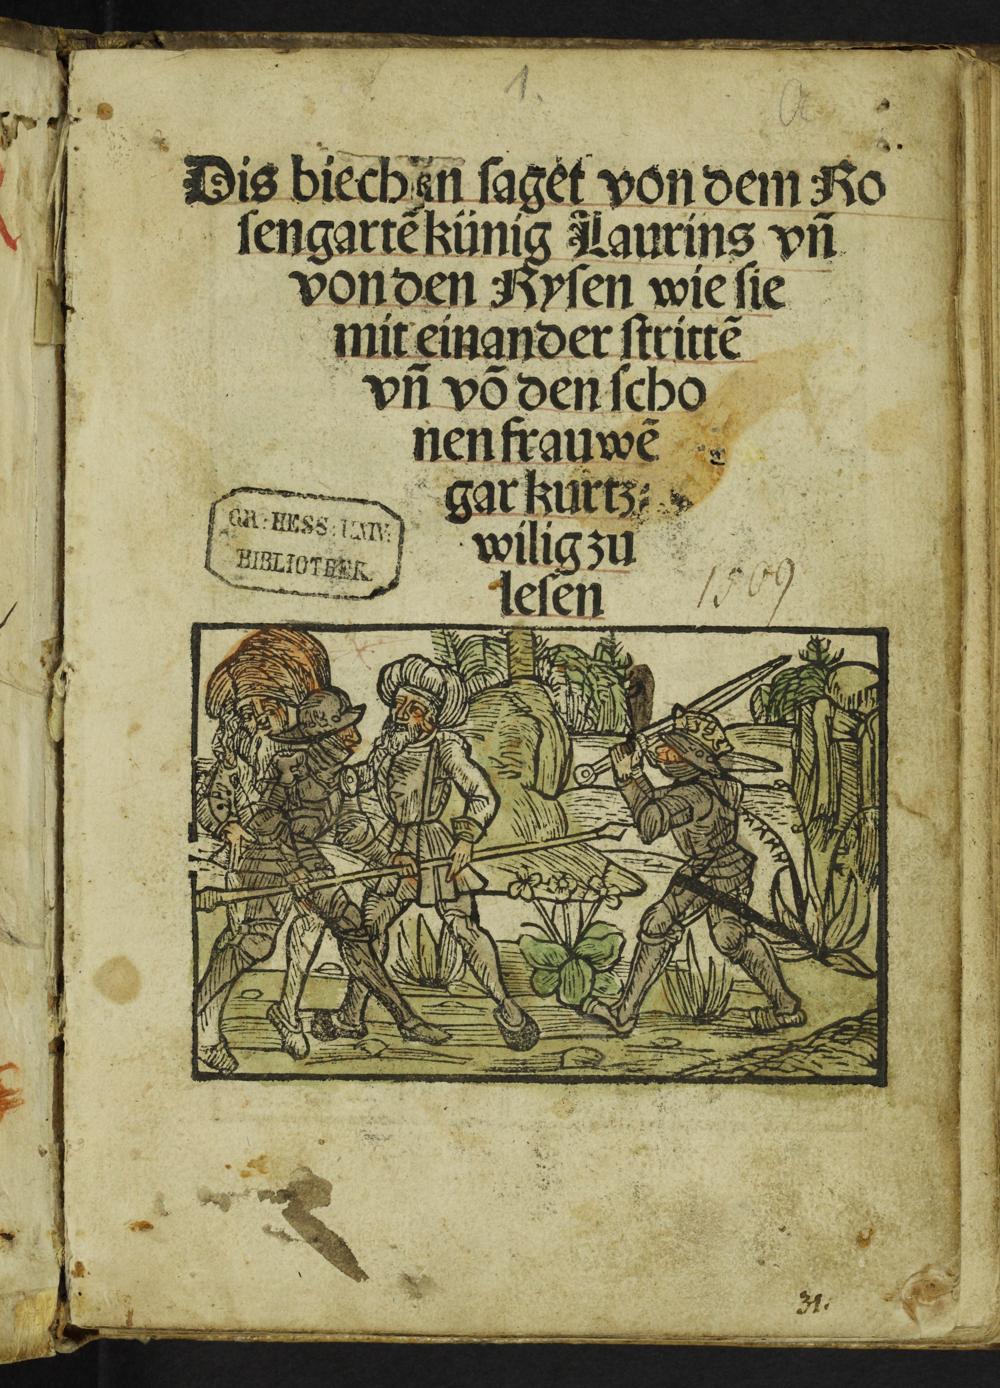 1.
a
Dis biechlin saget von dem Ro
sengartē künig Laurins vn̄
von den Rysen wie sie
mit einander strittē
vn̄ vō den scho
nen frauwē
gar kurtz
wilig zu
lesen
GR: HESS: UNIV:
BIBLIOTHEK
1509
31.